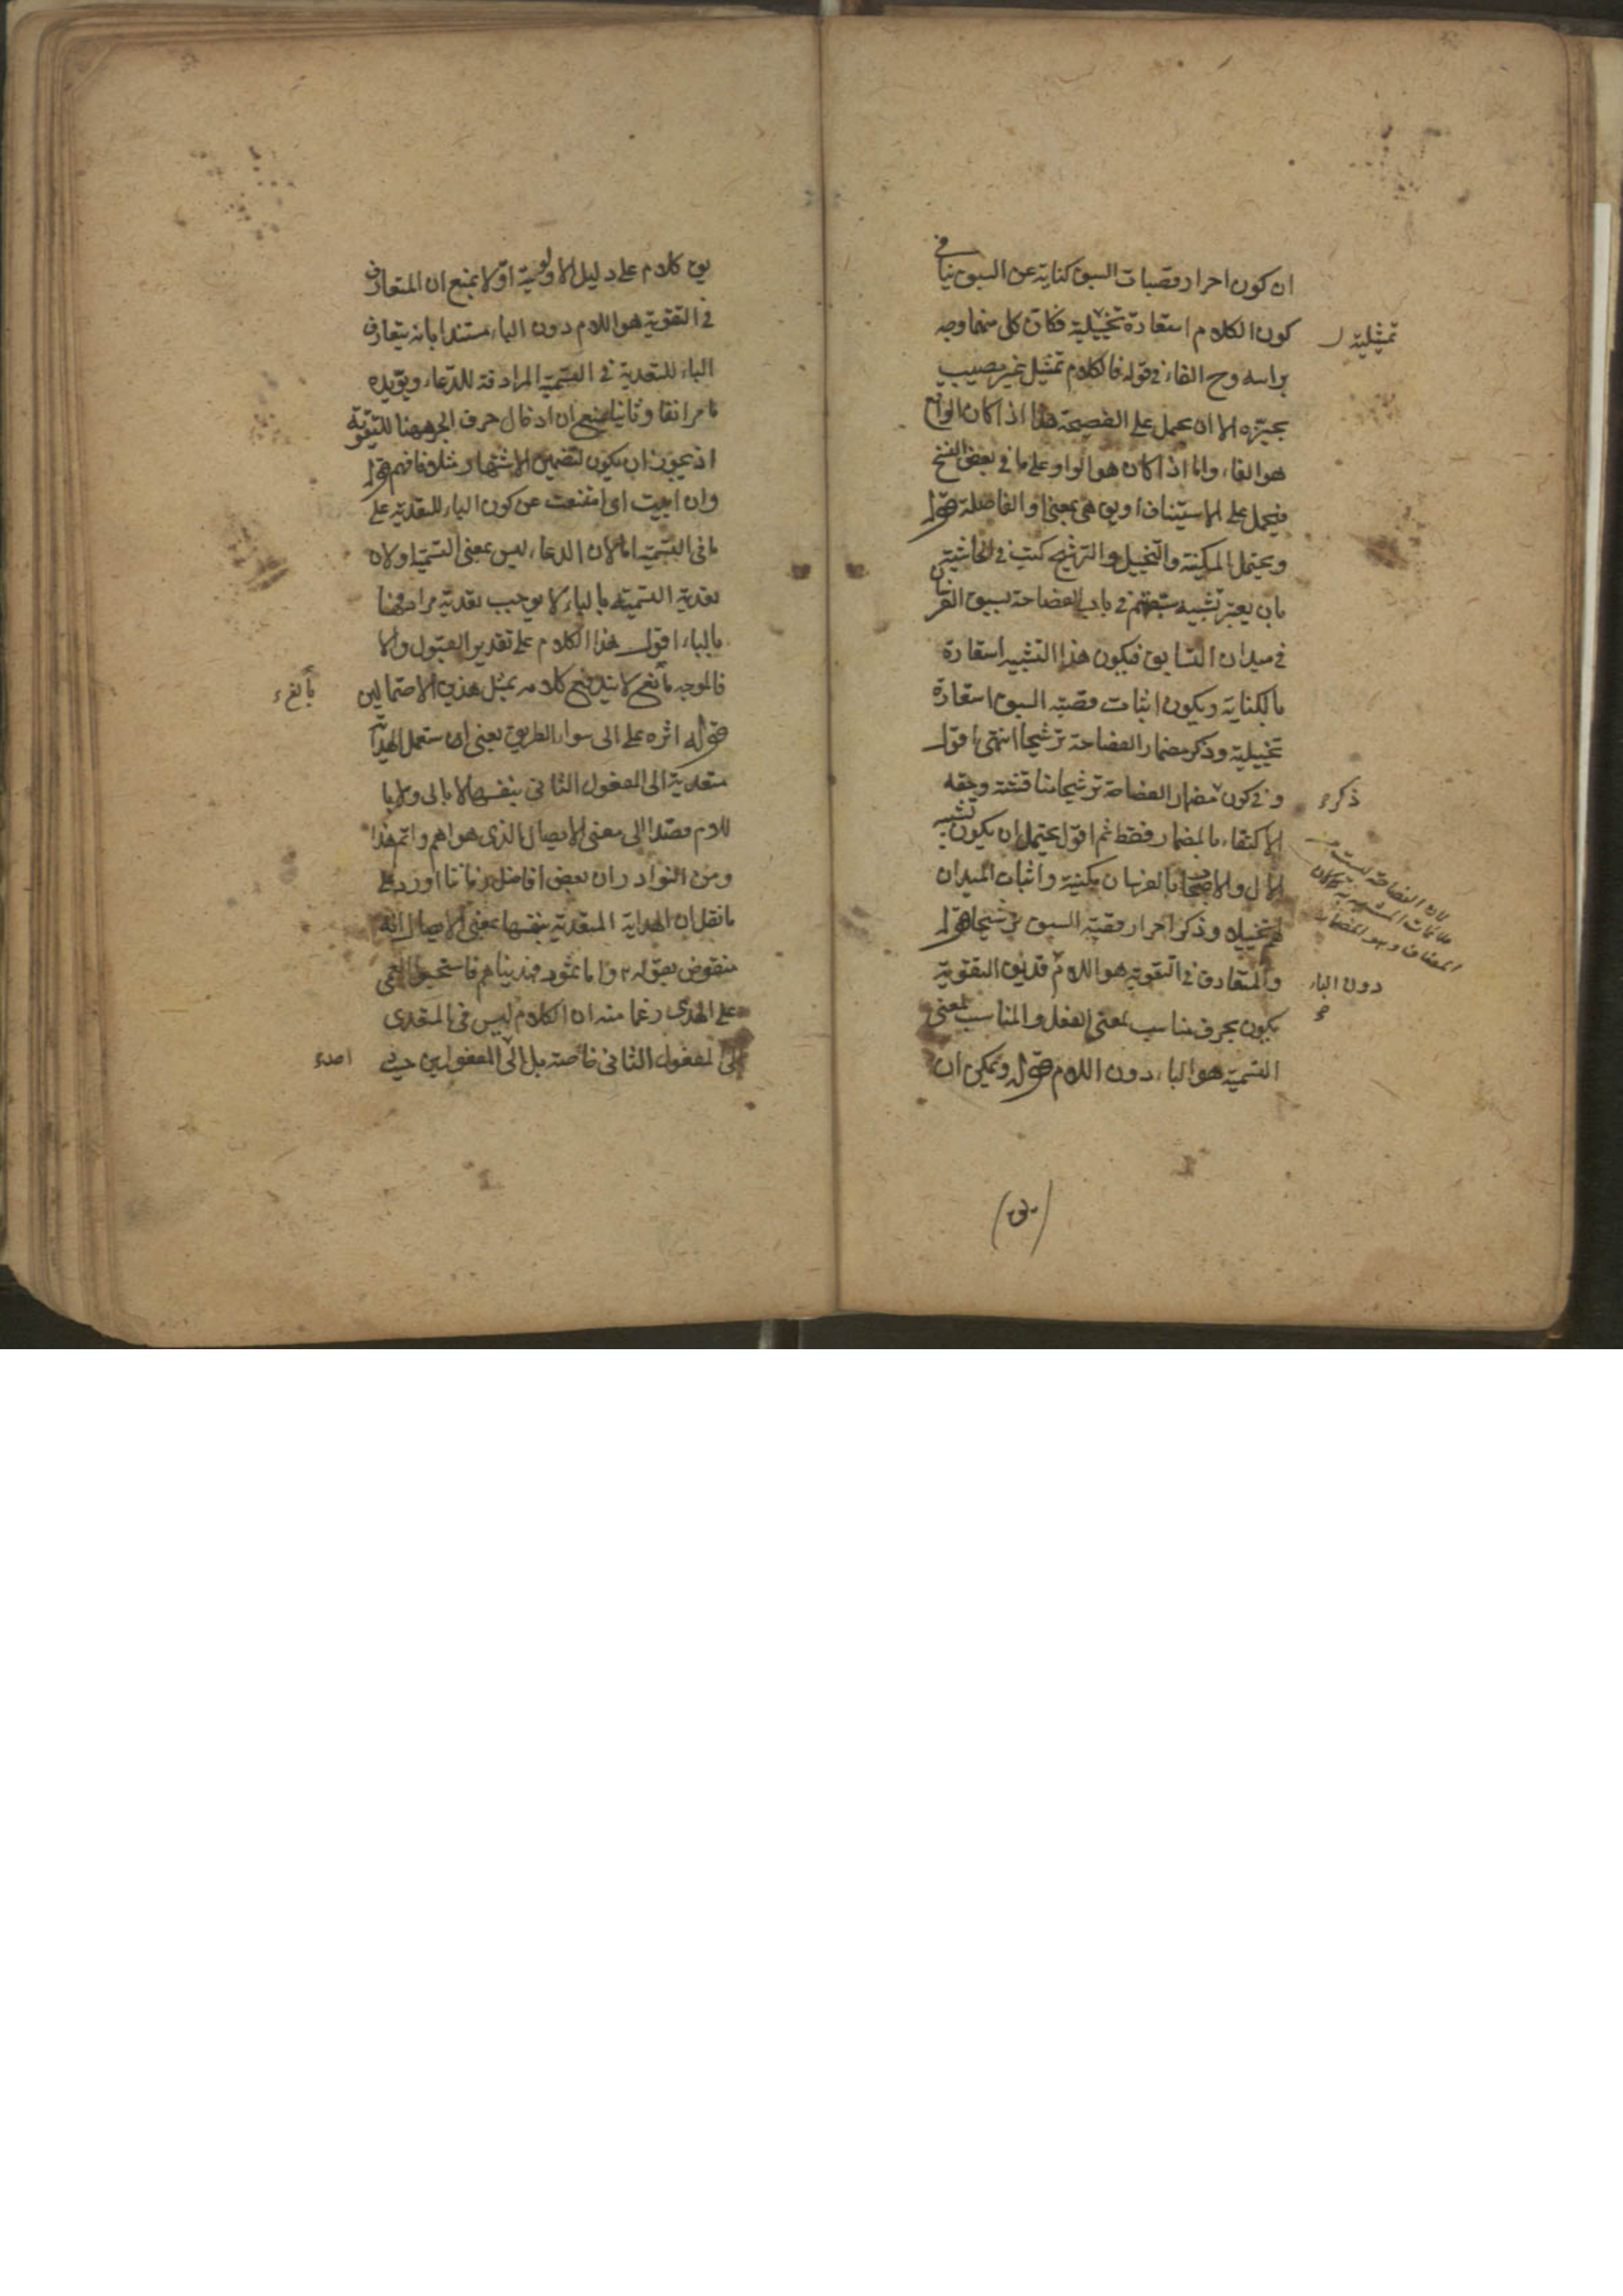 ان كون احراز قصبات السبق كناية عن السبق ينافي
كون الكلام استعارة تخييلية فكان كل منهما وجه
تمثيلية
براسه وح الفاء في قوله فالكلام تمثيل غير مصيب
بحيزه الا ان يحمل على الفصيحة هذا اذا كان الواقع
هو الفاء واما اذا كان هو الواو على ما في بعض النسخ
فيحمل على الاستيناف او يق هي بمعنى او الفاصلة قوله
ويحتمل المكنية والتخييل والترشيح كتب في الحاشية
بان يعتبر تشبيه سبقهم في باب الفصاحة بسبق الفرسان
في ميدان التسابق فيكون هذا التشبيه استعارة
بالكناية ويكون اثبات قصبة السبق استعارة
تخييلية وذكر مضمار الفصاحة ترشيحا انتهى اقول
و في كون مضمار الفصاحة ترشيحا مناقشة وحقه
ذكر
الاكتفاء بالمضمار فقط ثم اقول يحتمل ان يكون تشبيه
لان الفصاحة ليست من
ملائمات المشبه به
المضاف وهو المضمار
الال والاصحاب بالفرسان مكنية واثبات الميدان
لهم تخييلا وذكر احراز قصبة السبق ترشيحا قوله
والمتعارف في التقوية هو اللام قد يق التقوية
دون الباء
يكون بحرف مناسب لمعنى الفعل والمناسب لمعنى
التسمية هو الباء دون اللام قوله ويمكن ان
يق كلام على دليل الاولوية اولا بمنع ان المتعارف
في التقوية هو اللام دون الباء مستندا بانه يتعارف
الباء للتعدية في التسمية المرادفة للدعاء ويؤيده
ما مر انفا وثانيا بمنع ان ادخال حرف الجر ههنا للتقوية
اذ يجوز ان يكون لتضمين الاشتهار مثلا فافهم قوله
وان ابيت اى امتنعت عن كون الباء للتعدية على
ما في التسمية اما لان الدعاء ليس بمعنى التسمية او لان
تعدية التسمية بالباء لا يوجب تعدية مرادفها
بالباء اقول هذا الكلام على تقدير القبول والا
فالموجه مانع لا يندفع كلامه بمثل هذين الاحتمالين
قوله اثره على الى سواء الطريق يعنى ان استعمل الهداية
متعدية الى المفعول الثانى بنفسها لا بالى ولا با
للام قصدا الى معنى الايصال الذى هو اهم واتم هذا
ومن النوادر ان بعض افاضل زماننا اورد على
ما نقل ان الهداية المتعدية بنفسها بمعنى الايصال انه
منقوض بقوله تع واما ثمود فهديناهم فاستحبوا العمى
على الهدى زعما منه ان الكلام ليس في المتعدى
الى المفعول الثانى خاصة بل الى المفعولين حيث